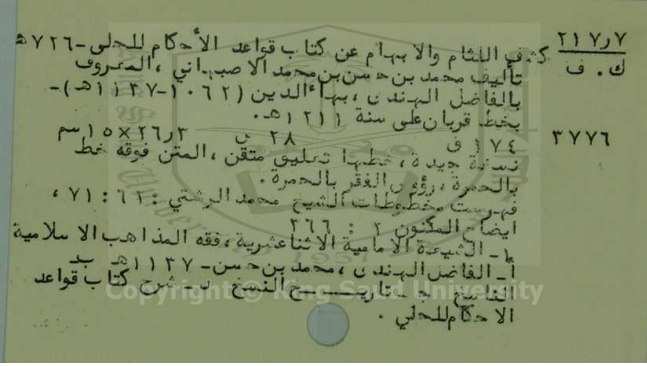 ٢١٧٫٧ كشف اللثام والابهام عن كتاب قواعد الأحكام للحلى -٧٢٦هـ
ك . ف تأليف محمد بن حسن بن محمد الاصبهاني ، المعروف
بالفاضل الهندى ، بهاء الدين (١٠٦٢-١١٣٧هـ) -
بخط قربان على سنة ١٢١١هـ .
٣٧٧٦ ١٧٤ ق ٢٨ س ٢٦٫٣×١٥ سم
نسخة جيدة ، خطها تعليق متقن ، المتن فوقه خط
بالحمرة ، رؤوس الفقر بالحمرة .
فهرست مخطوطات الشيخ محمد الرشتي : ٦١ : ٧١ ،
ايضاح المكنون ٢ : ٣٦٦
١- الشيعة الامامية الاثنا عشرية ، فقه المذاهب الاسلامية
أ- الفاضل الهندى ، محمد بن حسن - ١١٣٧هـ ب-
الناسخ ج- تاريخ النسخ د- شرح كتاب قواعد
الاحكام للحلي .
Copyright © King Saud University
1957